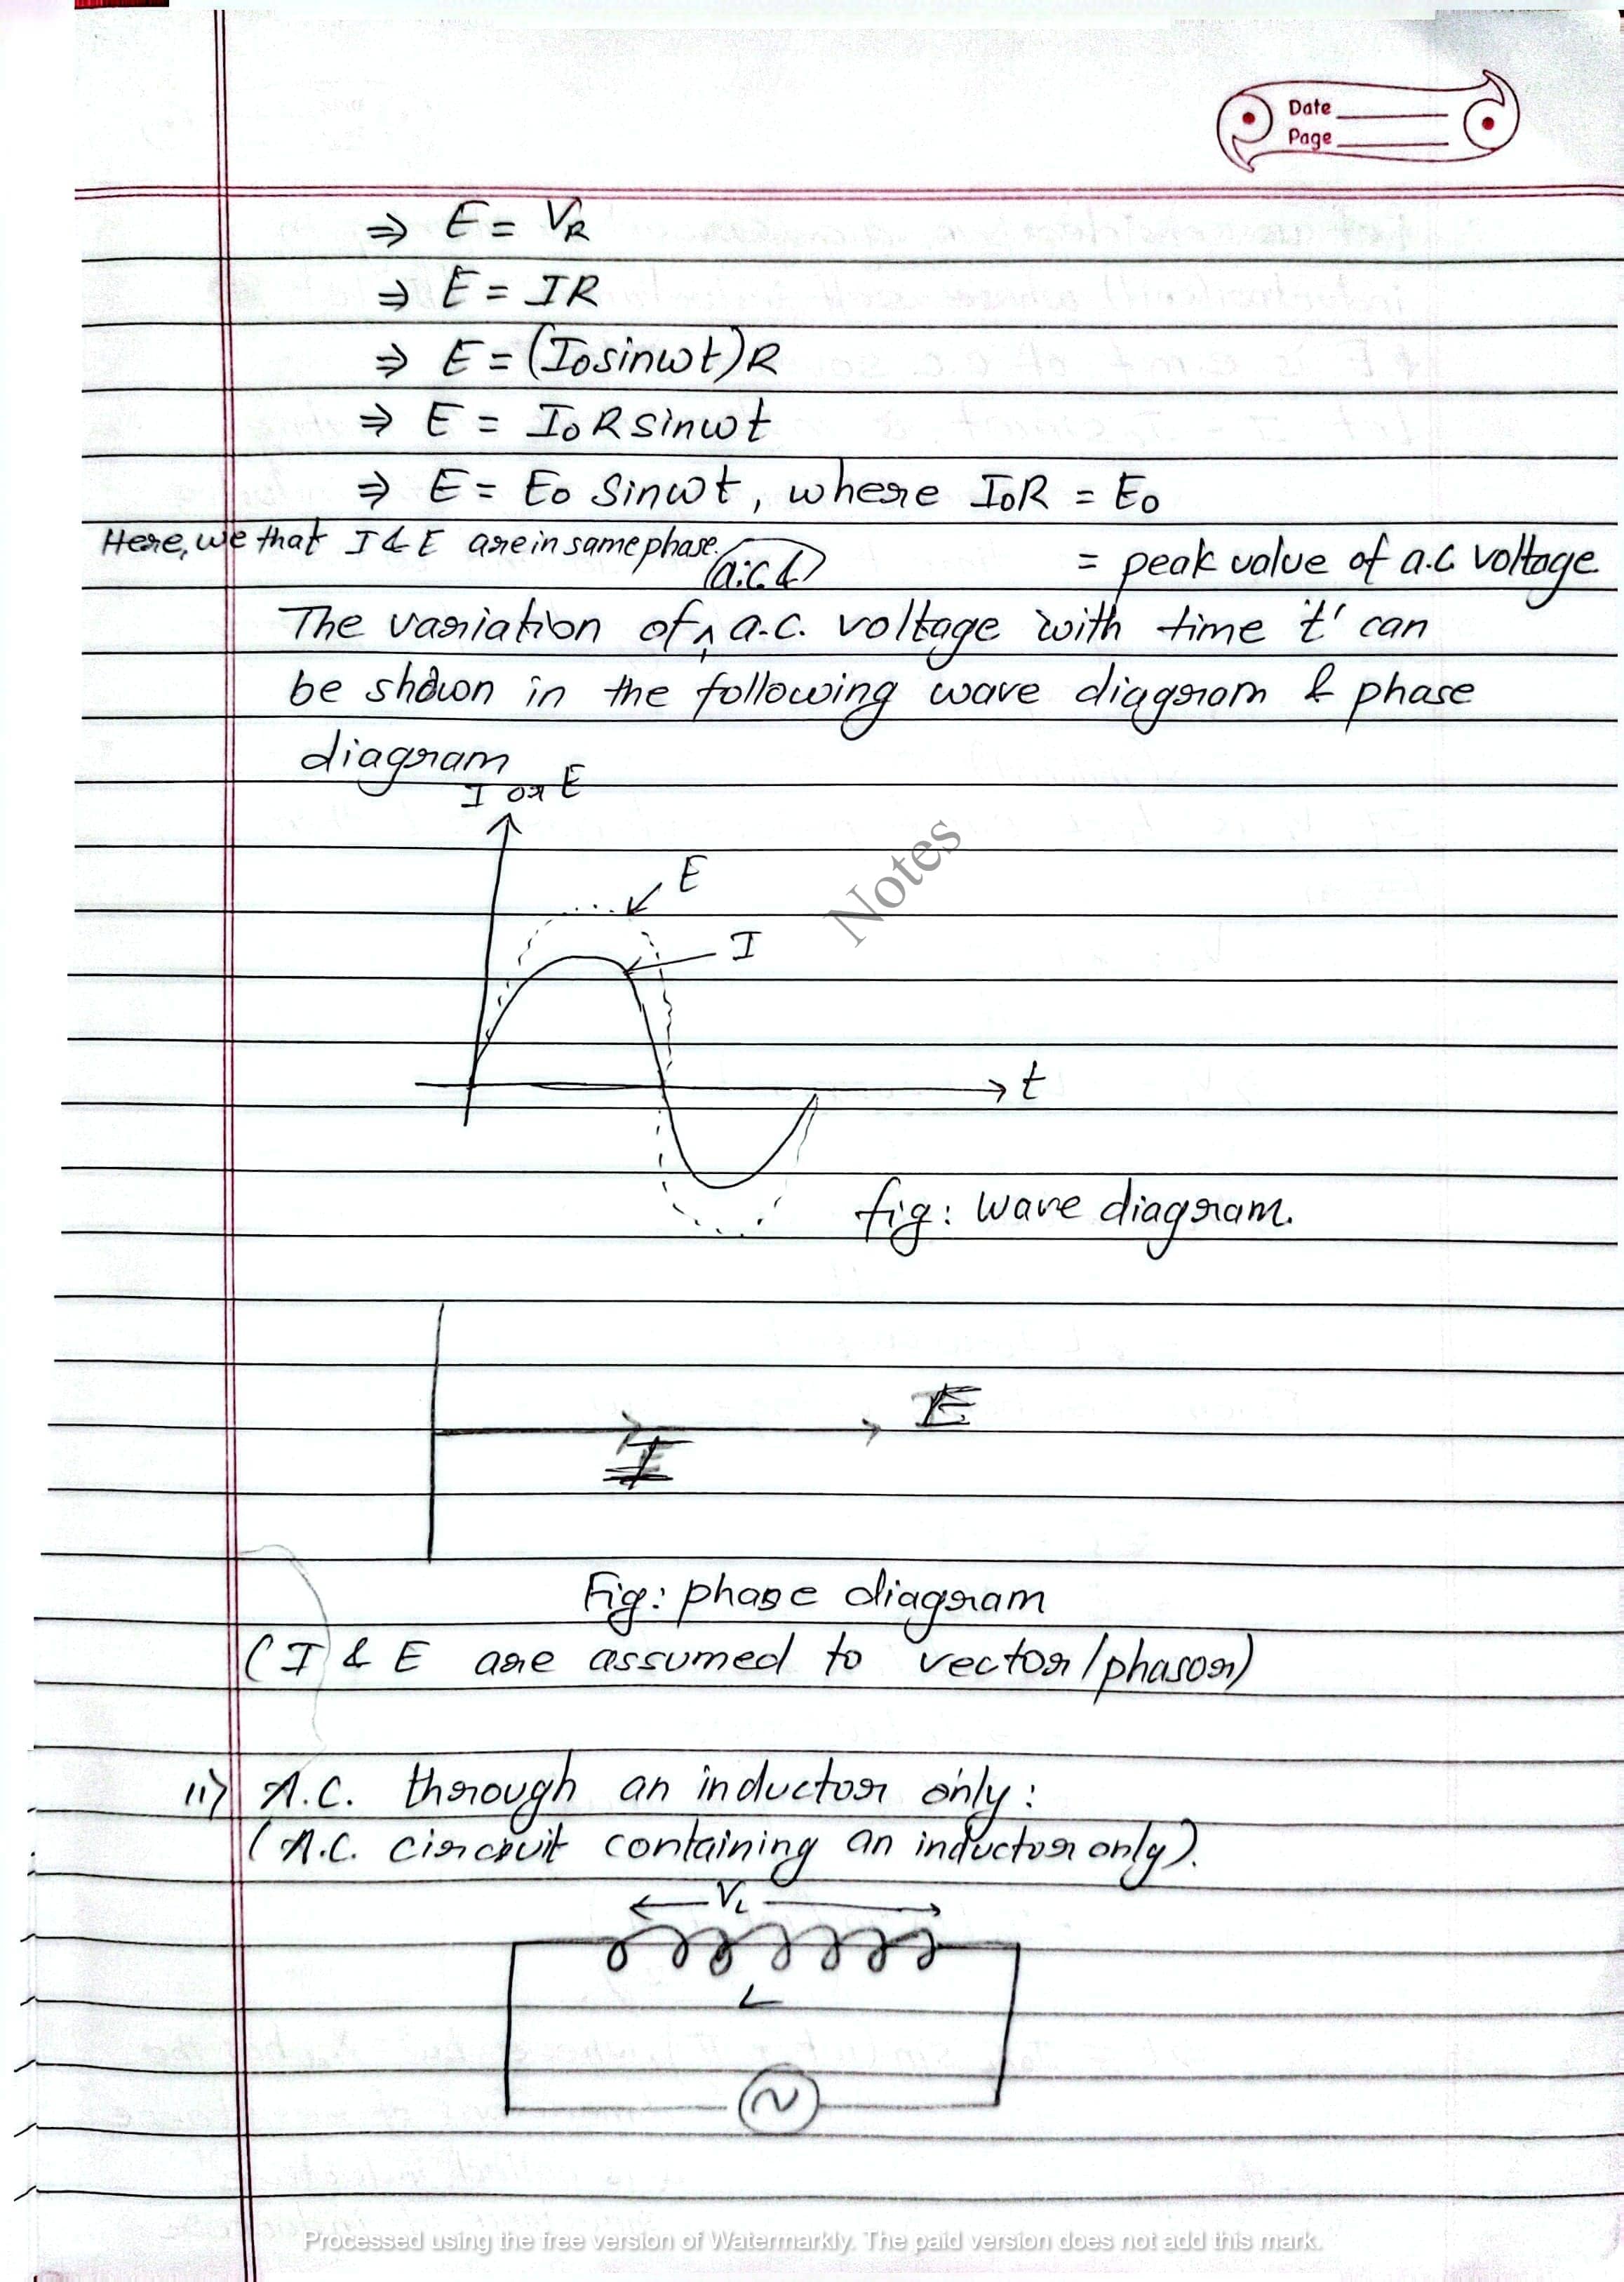 Date
Page
⇒ E = VR
⇒ E = IR
⇒ E = (I0sinωt)R
⇒ E = I0Rsinωt
⇒ E = E0 sinωt, where I0R = E0
Here, we that I & E are in same phase.
= peak value of a.c voltage
a.c &
The variation of ^ a.c. voltage with time 't' can
be shown in the following wave diagram & phase
diagram
I or E
E
I
t
fig: wave diagram.
E
I
Fig: phase diagram
(I & E are assumed to vector/phasor)
ii) A.C. through an inductor only:
(A.C. circuit containing an inductor only).
VL
L
Notes
Processed using the free version of Watermarkly. The paid version does not add this mark.